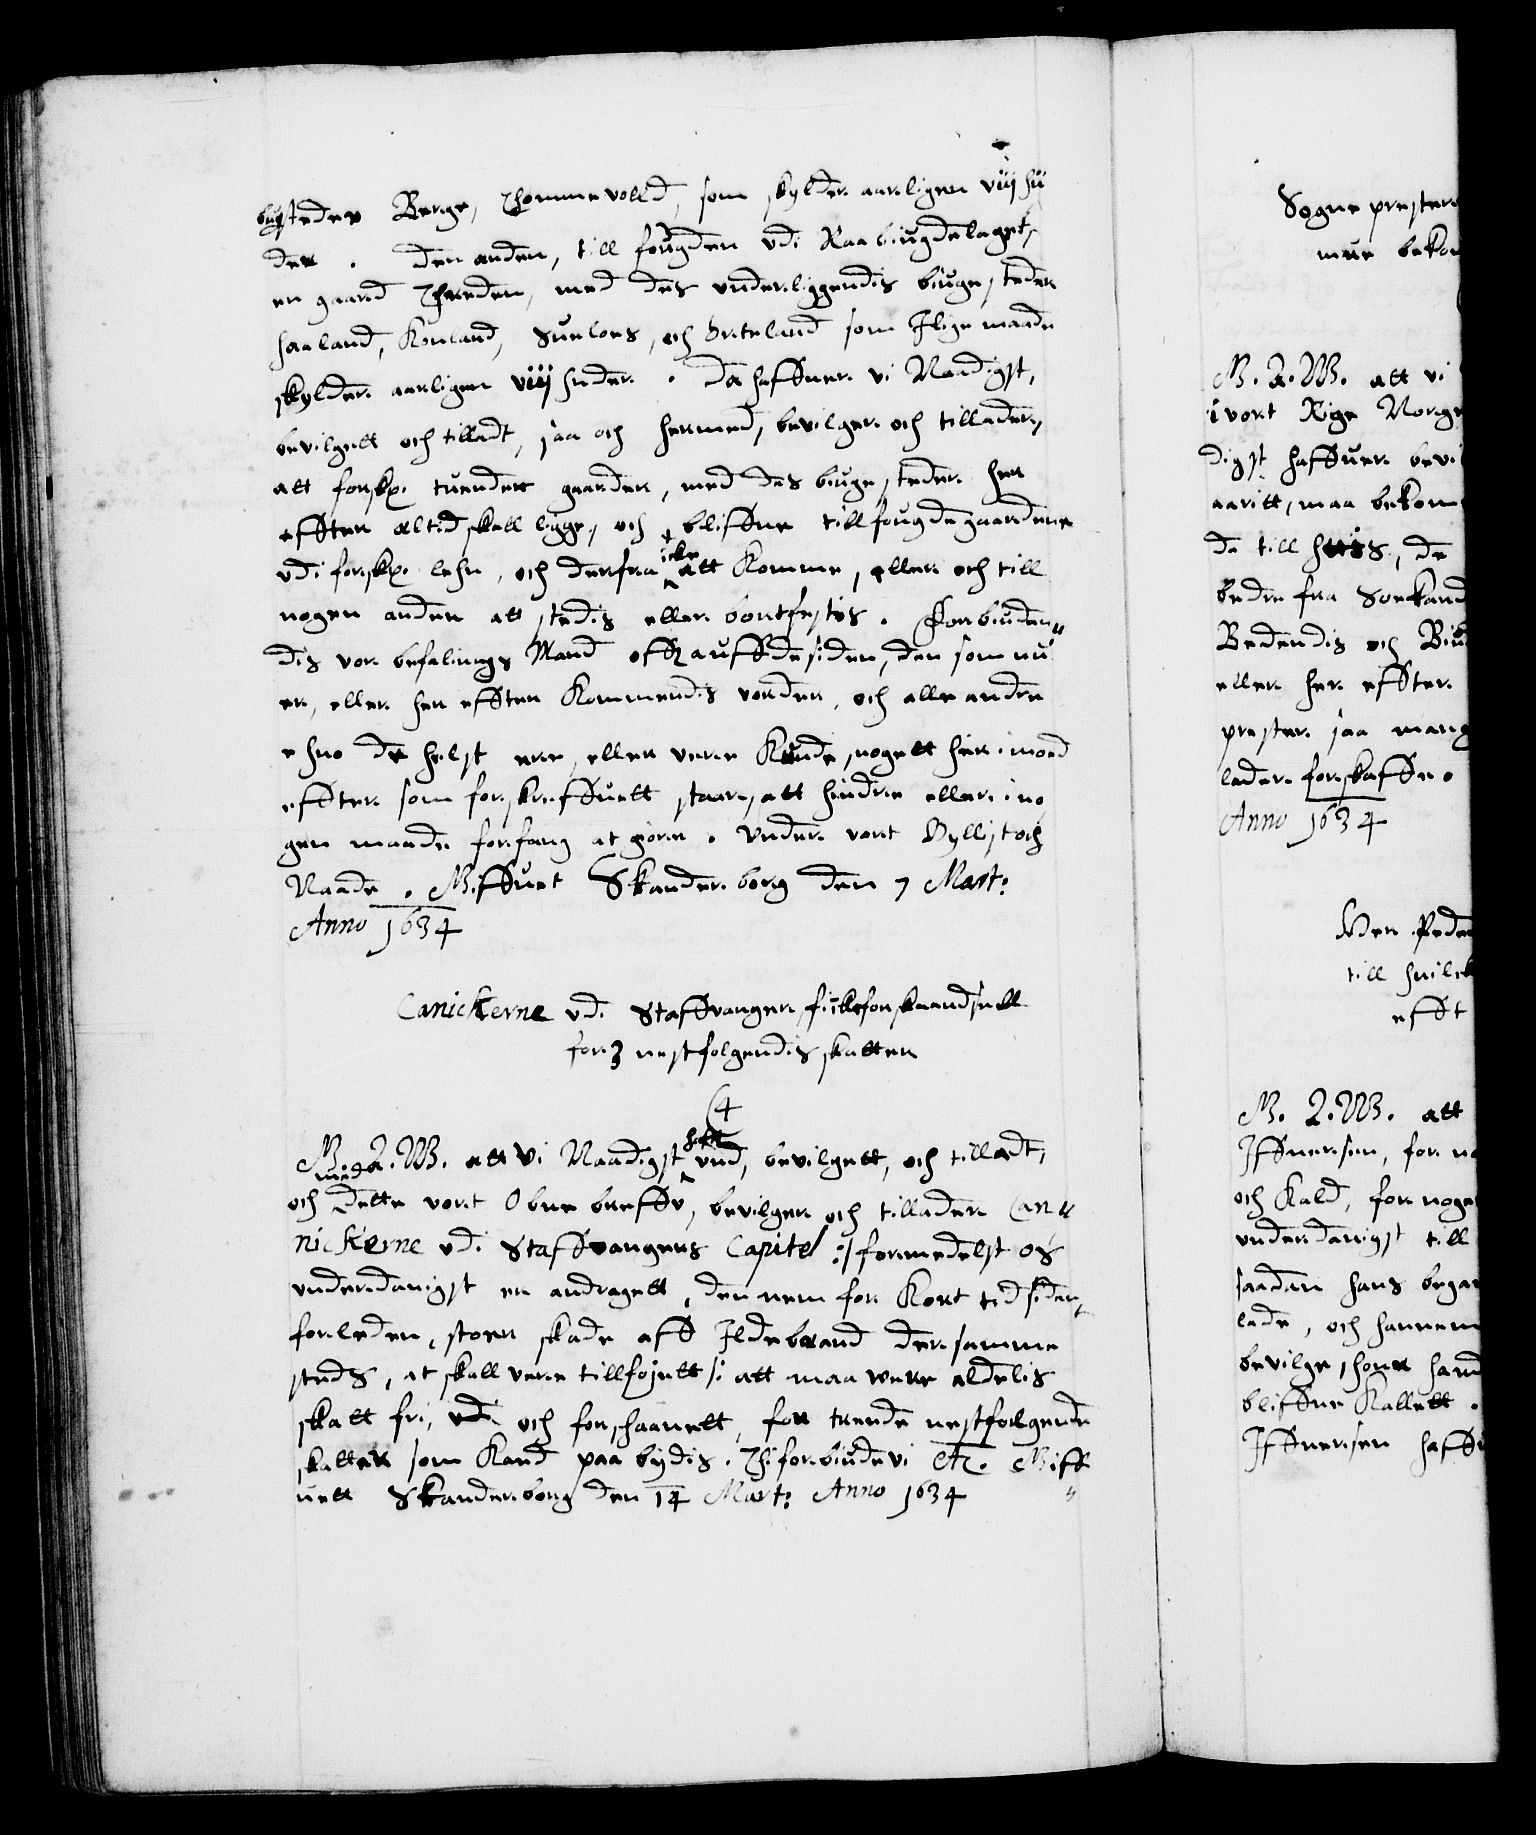 bugsteder Berge, Thommevolld, som skylder aarligen viij hu
der. den anden, till fougden udi Raabiugdelaget,
en gaard Threden, med des underliggendis biugesteder
Haaland, Kouland, Suelors, och Urteland som Jlige maade
skylder aarligen viij huder. Da haffuer vi Naadigst,
bevilgett och tilladt, saa och hermed, bevilger och tillader,
att forskr. tuender gaarder, med des biugesteder her
effter altid skall ligge, och bliffue till fougdegaardene
udi forskr. lehn, och derfra icke att komme, eller och till
nogen anden att stedis eller bortfestis. Forbiuden"
dis vor befalings Mand offr auffdesiden, den som nu
er, eller her effter kommendis vorder, och alle andre
ehuo de helst ere, eller vere kunde, nogett her imod
effter som forskreffuett staar, att hindre eller i no
gen maade forfang at giøre. Under vort Hyllist och
Naade. Giffuet Skanderborg den 7 Mart:
Anno 1634
Canickerne udi Staffvanger fick forskaandsell
for 3 nestfolgendis skatter
(4
G. A. W. att vi Naadigst haffr und, bevilgett, och tilladt,
och med dette vort Obne breff, bevilger och tillader Can"
nickerne udi Staffvangers Capitel :/ formedelst os
underdanigst er andragett, dennem for kort tid siden,
forleden, stoer skade aff Jldebrand der samme
steds, at skall vere tillføjett /: att maa were aldelis
skatt fri, udi och forschaanett, for trende nestfolgende
skatter som kand paabydis. Thi forbiude vi etc. Giff
uett Skanderborg den 14 Mart: Anno 1634
Sogne prester
mue beko
G. A. W. att vi
i vort Rige Norge
digst haffuer bevi
aaritt, maa bekom
de till huus, de
bedre fra Soekand
Bedendis och Biu
eller her effter
prester saa mang
lader forskaffe.
Anno 1634
Her Peder
till huilck
efft
G. A. W. att
Iffuersen, for no
och Kald, for noge
underdanigst till
saadan hans begæ
lade, och hannem
bevilge, honr hand
bliffue Kallett.
Iffuersen haffu